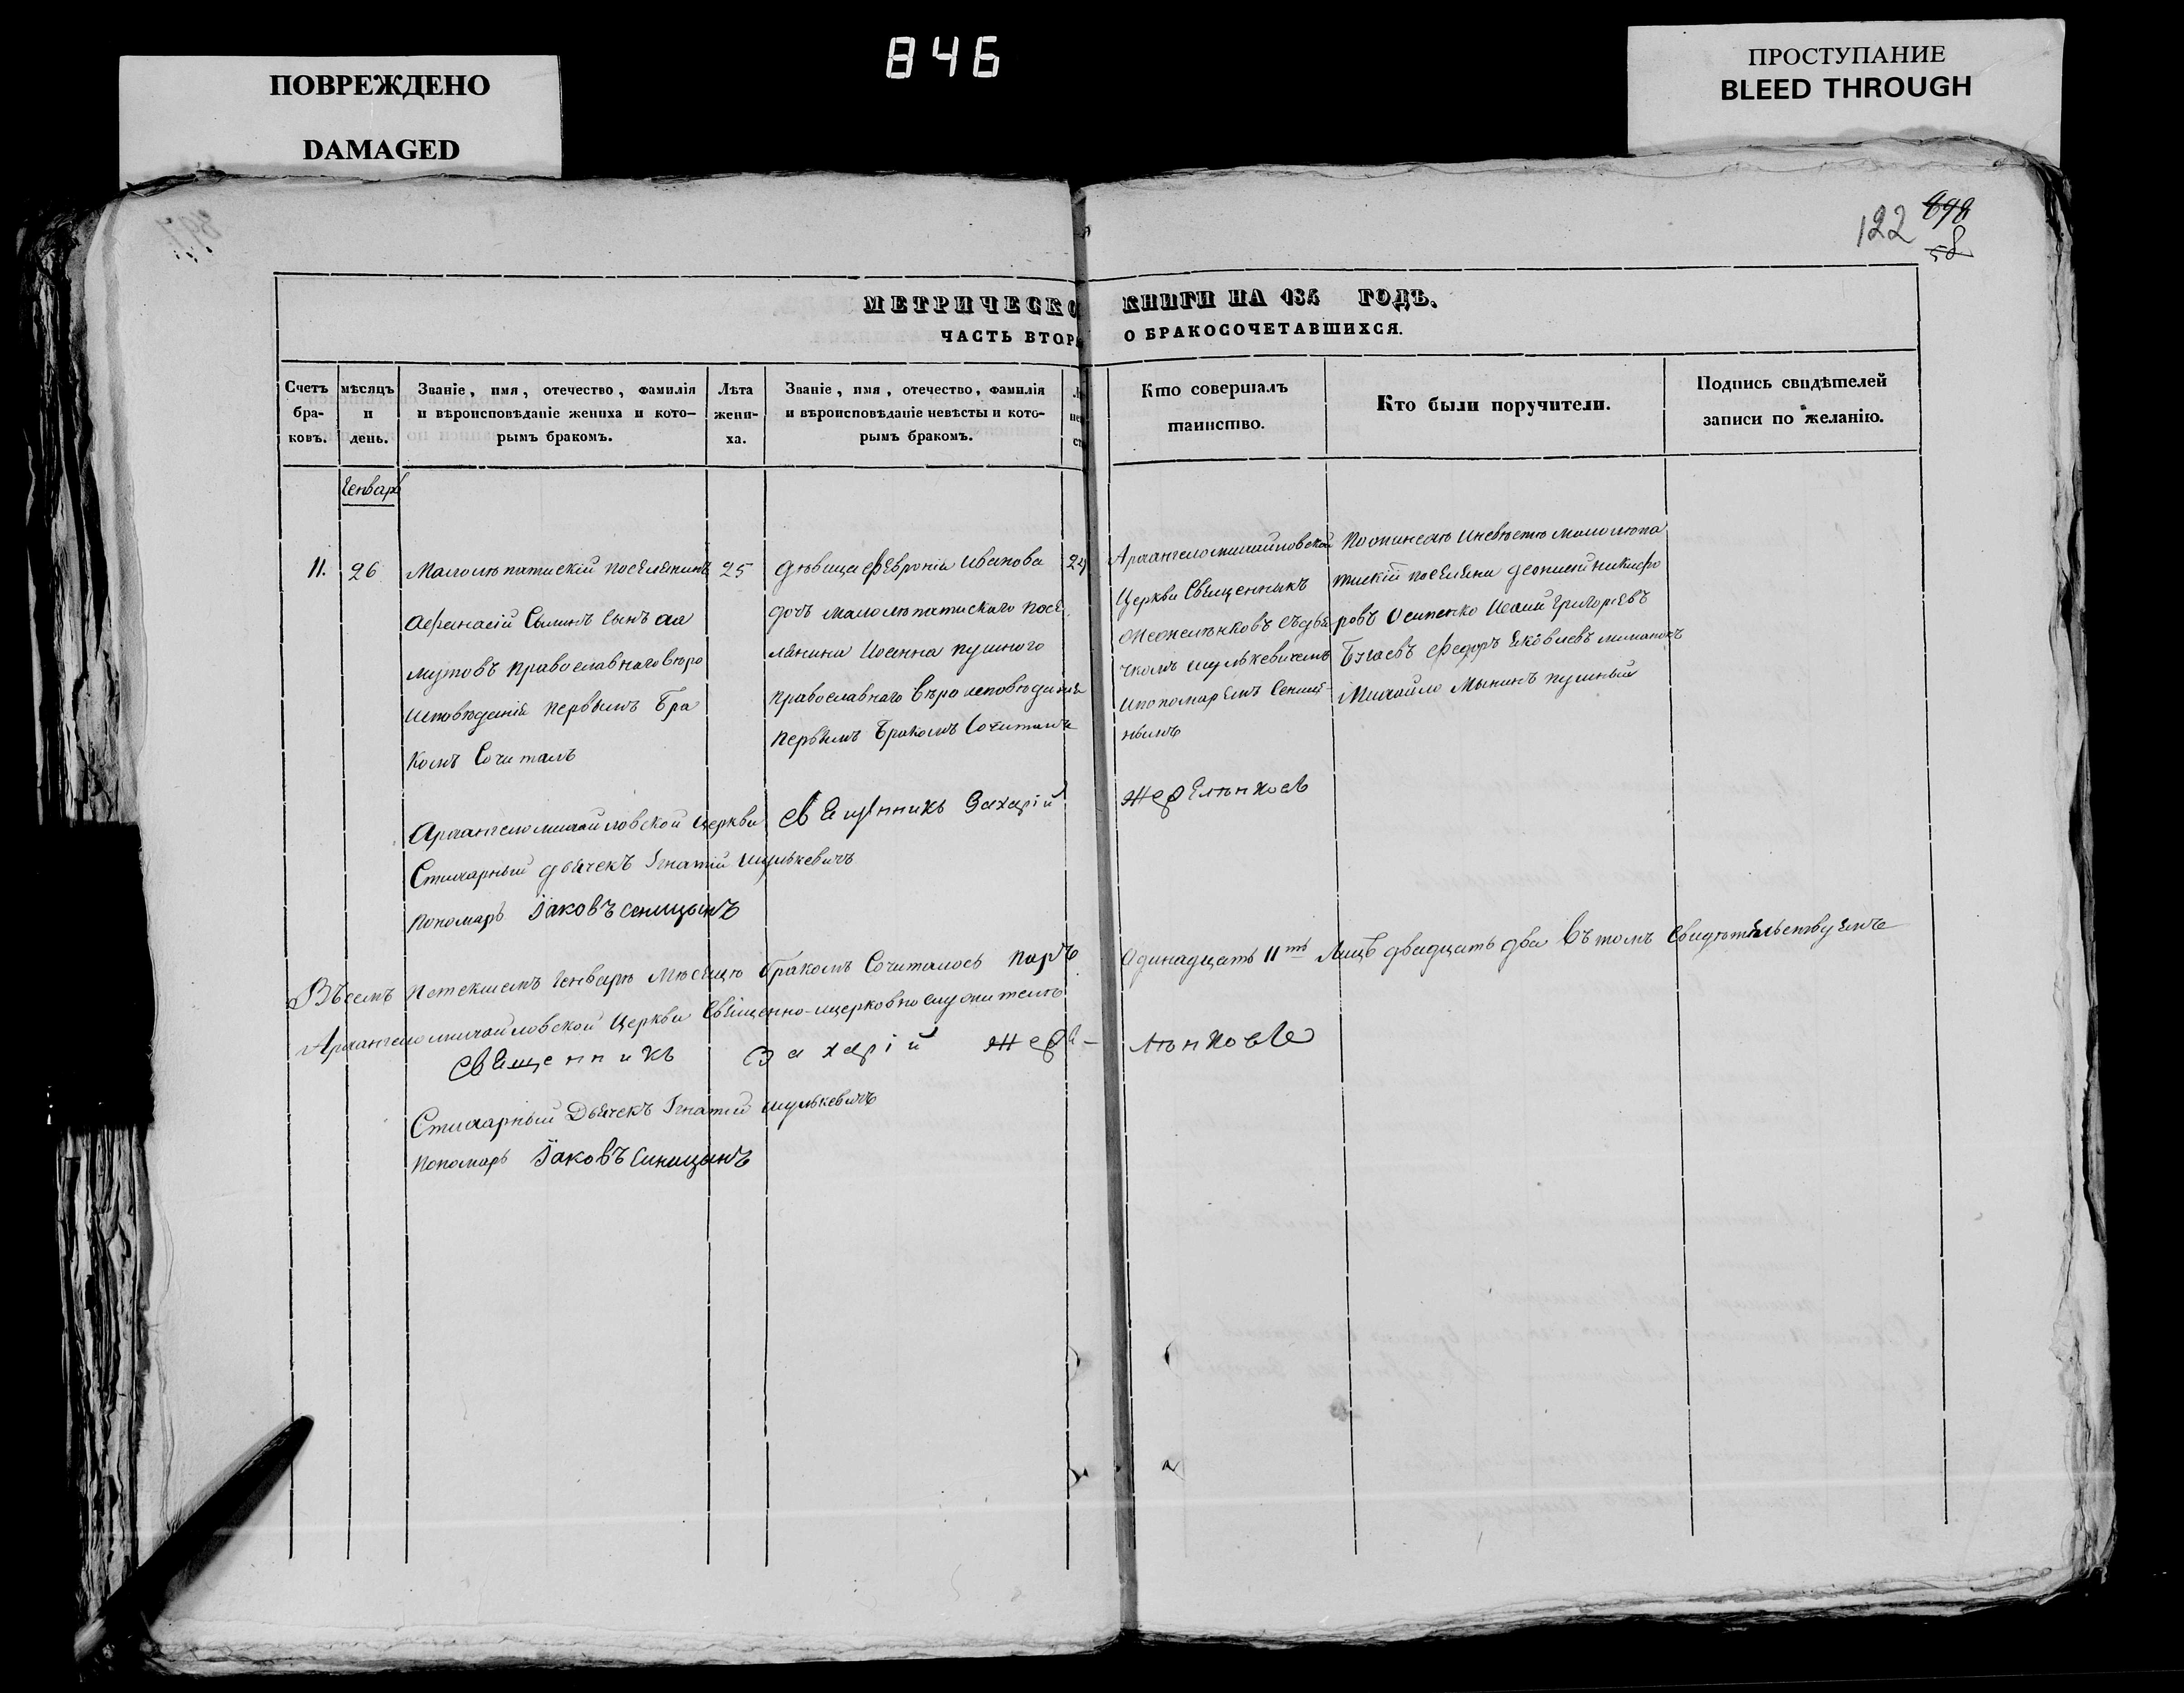 846
ПОВРЕЖДЕНО
DAMAGED
ПРОСТУПАНИЕ
BLEED THROUGH
122
898
58
МЕТРИЧЕСКО КНИГИ НА 184 ГОДЪ.
ЧАСТЬ ВТОР О БРАКОСОЧЕТАВШИХСЯ.
Счетъ
бра-
ковъ.
мѣсяцъ
и
день.
Званіе, имя, отечество, фамилія
и вѣроисповѣданіе жениха и кото-
рымъ бракомъ.
Лѣта
жени-
ха.
Званіе, имя, отечество, фамилія
и вѣроисповѣданіе невѣсты и кото-
рымъ бракомъ.
Кто совершалъ
таинство.
Кто были поручители.
Подпись свидѣтелей
записи по желанію.
Генварь
11.
26
Малолѣпатискій поселянинъ
Афанасій сынъ
православнаго вѣро
исповѣданія первымъ бра
комъ сочиталъ
25
дѣвица Февронія Иванова
дочь малолѣпатискаго посе
лянина Иоанна пушного
православнаго вѣроисповѣданія
первымъ бракомъ сочитали
24
Архангеломихайловской
церкви священникъ
съ дья
чкомъ шулькевичемъ
и пономаремъ синиц-
нымъ
по женихѣ и невѣстѣ малолѣпа
тискій поселяни никифо
ровъ Осипенко Исаій Григорьевъ
Бугаевъ Федоръ Яковлевъ
Михайло пушный
Архангеломихайловской церкви священникъ Захарій Жерелѣнковъ
Стихарный дьячекъ Игнатій шулькевичъ
пономарь Іаковъ синицынъ
Въ семъ истекшемъ генварѣ мѣсяцѣ бракомъ сочиталось паръ одинадцать 11ть лицъ двадцать два въ томъ свидѣтельствуемъ
Архангеломихайловской церкви священно-церковнослужители
священникъ Захарій Жере-лѣнковъ
Стихарный Дьячекъ Игнатій шулькевичъ
пономарь Іаковъ синицынъ